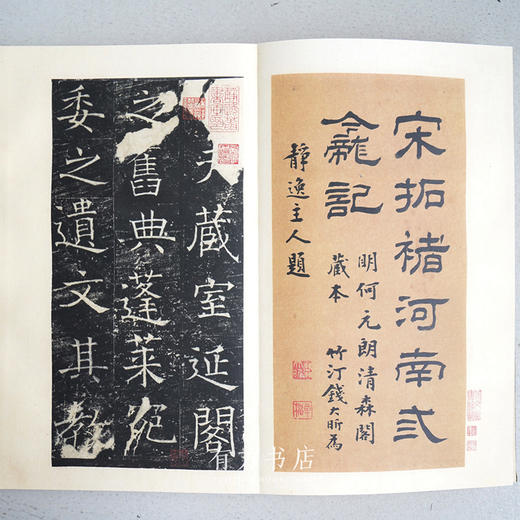 宋拓褚河南弍
龕記
明何元朗清森閣
藏本 竹汀錢大昕為
靜逸主人題
夫藏室延閣
之舊典蓬萊宛
委之遺文其教
有 書店